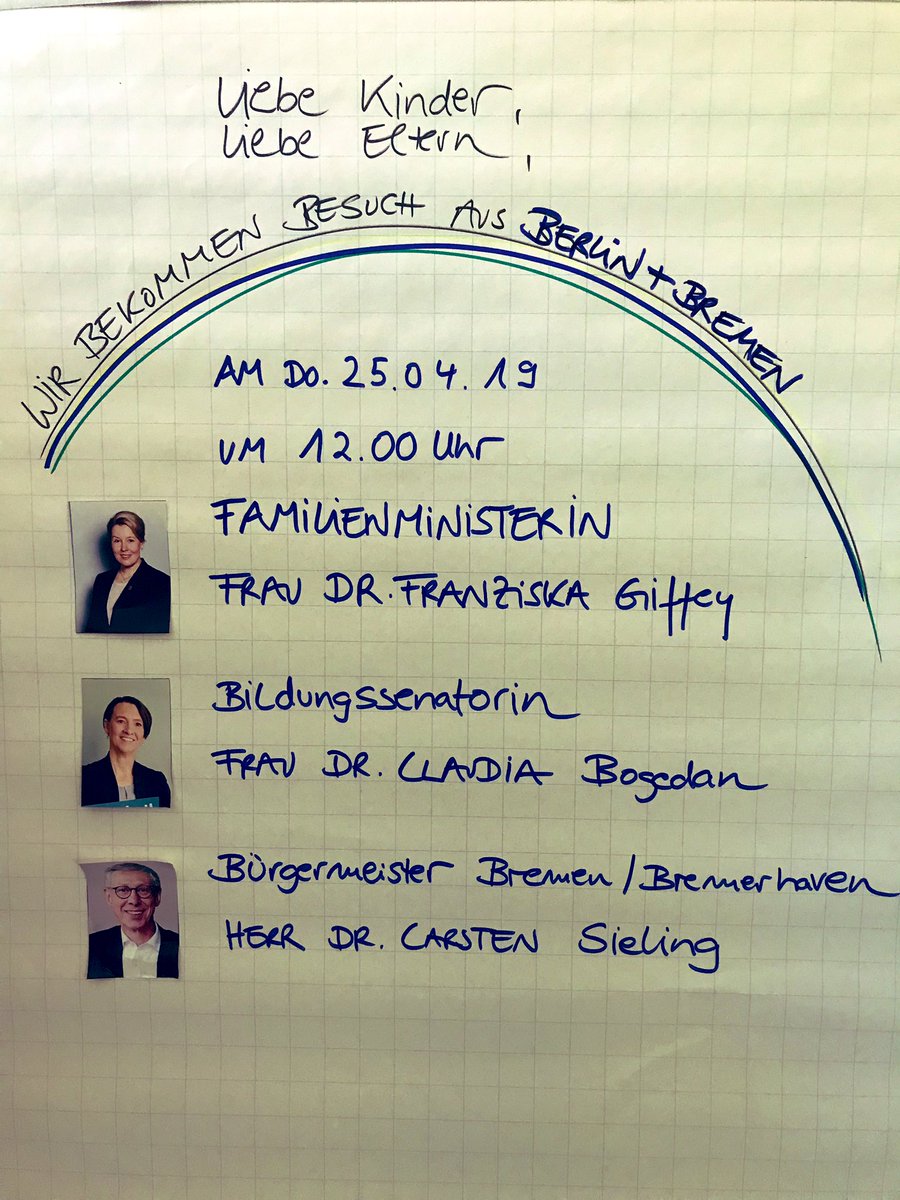 Liebe Kinder,
Liebe Eltern,
WIR BEKOMMEN BESUCH AUS BERLIN + BREMEN
AM DO. 25.04.19
UM 12.00 Uhr
FAMILIENMINISTERIN
FRAU DR. FRANZISKA Giffey
Bildungssenatorin
FRAU DR. CLAUDIA Bogedan
Bürgermeister Bremen/Bremerhaven
HERR DR. CARSTEN Sieling